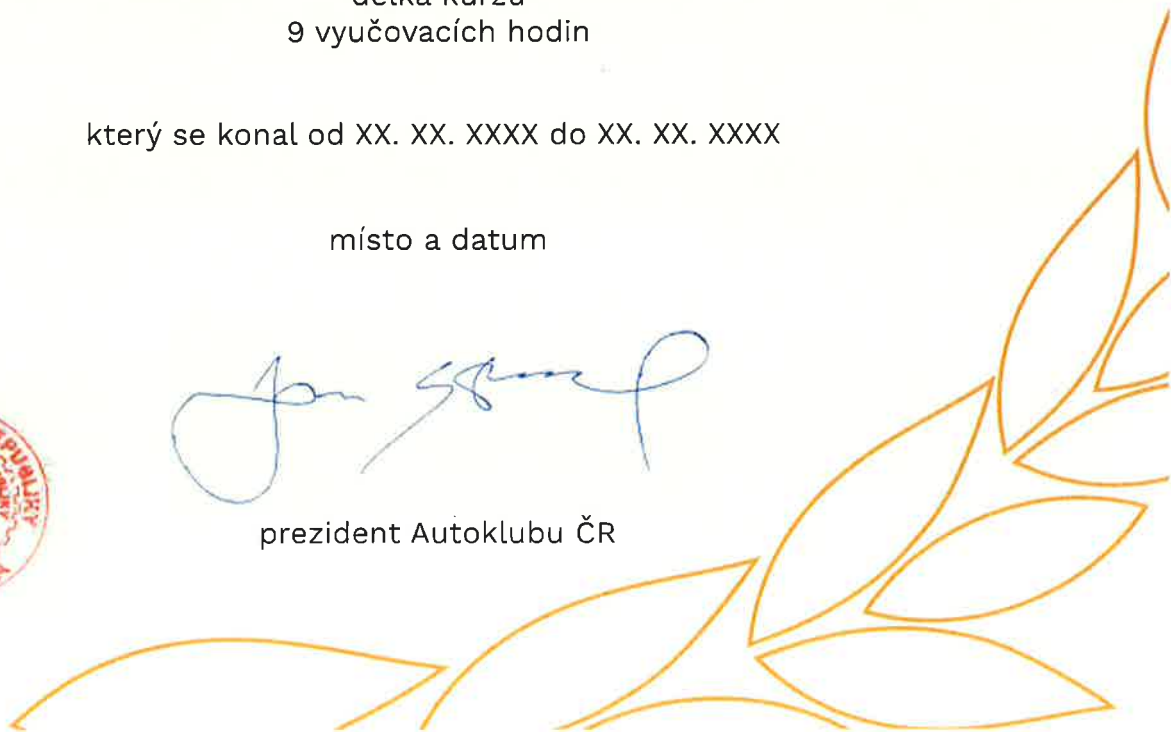 délka kurzu
9 vyučovacích hodin
který se konal od XX. XX. XXXX do XX. XX. XXXX
místo a datum
prezident Autoklubu ČR
REPUBLIKY